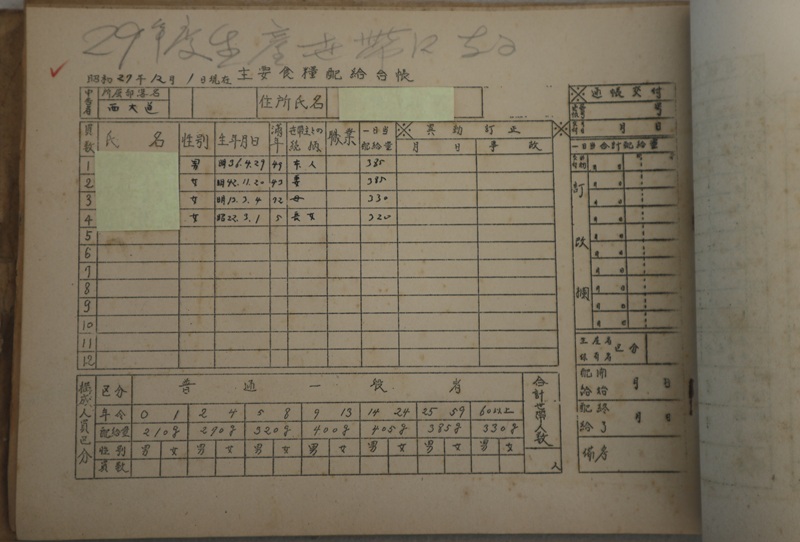 29年度生産世帯口
昭和27年12月1日現在 主要食糧配給台帳
所属部署名
西大道
住所氏名
員数 氏名 性別 生年月日 満年 世帯主との続柄 職業 一日当配給量 ※ 異動訂正 ※
月 日 事 故
1 男 明36.4.29 49 本人 385
2 女 明42.11.20 43 妻 385
3 女 明13.3.4 72 母 330
4 女 昭22.3.1 5 長女 320
5
6
7
8
9
10
11
12
構成人員区分
区分 普通一般者 合計世帯人数
年令 0 1 2 4 5 8 9 13 14 24 25 59 60以上
配給量 210g 290g 320g 400g 405g 385g 330g
性別 男 女 男 女 男 女 男 女 男 女 男 女 男 女
員数 人
※ 通帳
号
月 日
一日当合計配給量
訂改欄
月 日
生産者
保有者 区分
配給開始 月 日
配給終了 月 日
備考